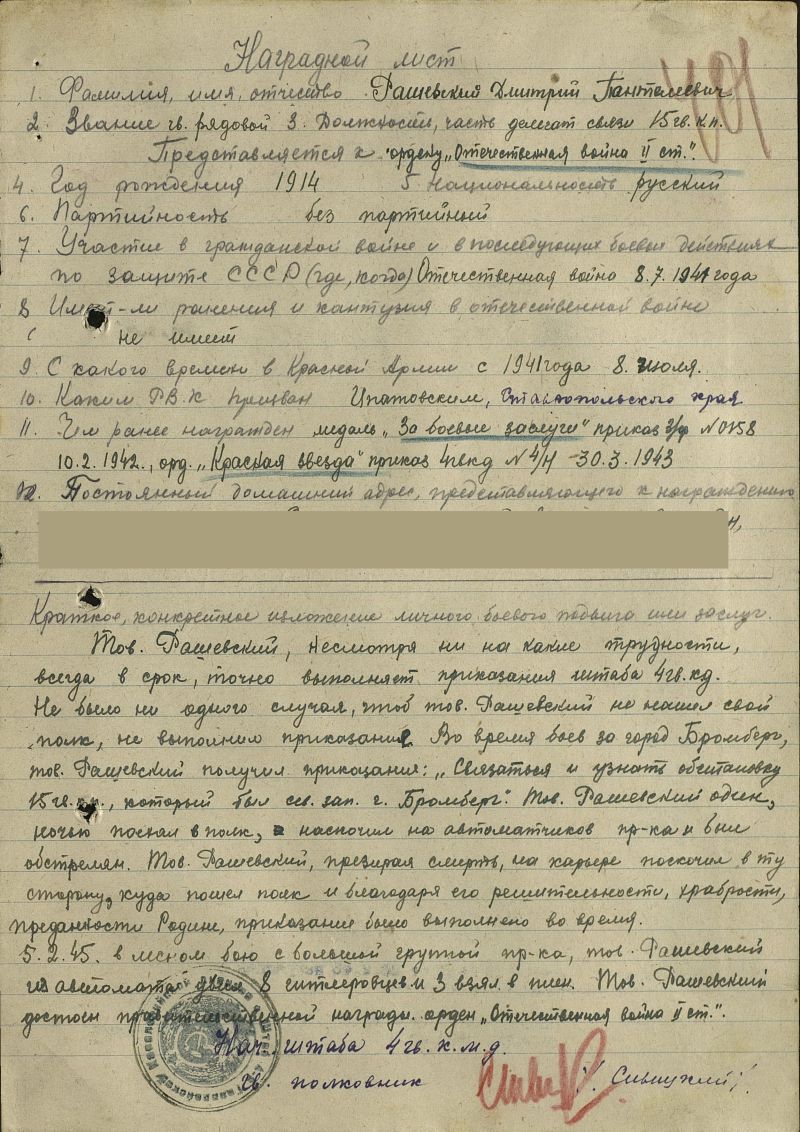 Наградной лист
1. Фамилия, имя, отчество Рашевский Дмитрий Пантелеевич
2. Звание гв. рядовой 3. Должность, часть делегат связи 15 гв. к.п.
Представляется к ордену „Отечественная война II ст.".
4. Год рождения 1914 5. Национальность русский
6. Партийность без партийный
7. Участие в гражданской войне и в последующих боевых действиях
по защите СССР (где, когда) Отечественная война 8.7.1941 года
8 Имеет-ли ранения и контузия в отечественной войне
не имеет
9. С какого времени в Красной Армии с 1941 года 8. июля.
10. Каким РВК призван Ипатовским, Ставропольского края
11. Чем ранее награжден медаль „За боевые заслуги" приказ N 0158
10.2.1942., орд. „Красная звезда" приказ 4гвкд N 4/н -30.3.1943
12. Постоянный домашний адрес, представляющего к награждению
Краткое, конкретное изложение личного боевого подвига или заслуг.
Тов. Рашевский, несмотря ни на какие трудности,
всегда в срок, точно выполняет приказания штаба 4гв.кд.
Не было ни одного случая, чтоб тов. Рашевский не нашел свой
полк, не выполнил приказания. Во время боев за город Бромберг,
тов. Рашевский получил приказание: „Связаться и узнать обстановку
15 гв. к.п., который был сев. зап. г. Бромберг". Тов. Рашевский один,
ночью поехал в полк, наскочил на автоматчиков пр-ка и был
обстрелян. Тов. Рашевский, презирая смерть, на карьере поскочил в ту
сторону, куда пошел полк и благодаря его решительности, храбрости,
преданности Родине, приказание было выполнено во время.
5.2.45. в лесном бою с большой группой пр-ка, тов. Рашевский
из автомата убил 8 гитлеровцев и 3 взял в плен. Тов. Рашевский
достоен правительственной награды орден „Отечественная война II ст.".
Нач. штаба 4гв.к.м.д.
гв. полковник /Сивицкий/